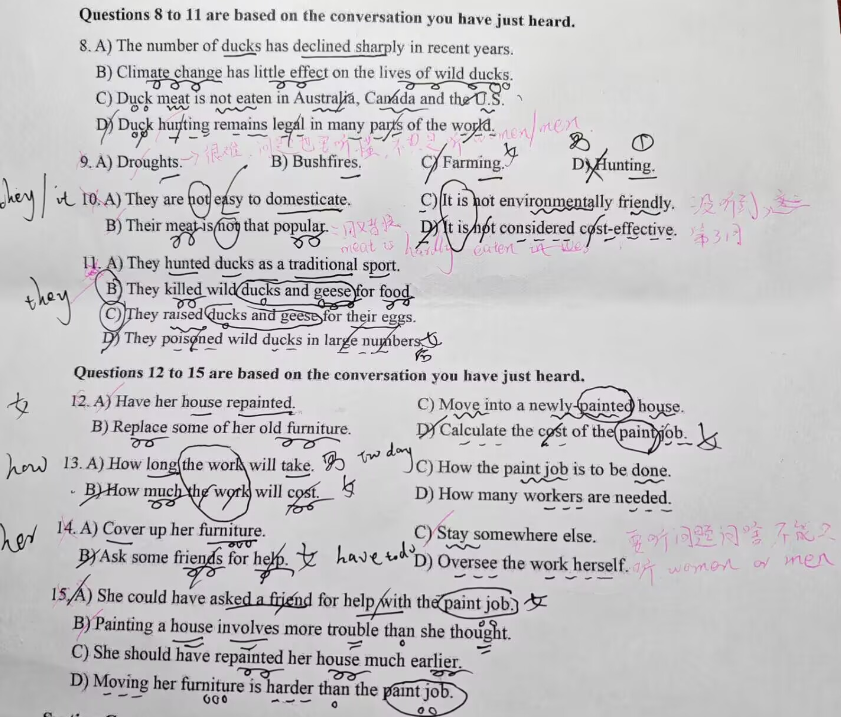 Questions 8 to 11 are based on the conversation you have just heard.
8. A) The number of ducks has declined sharply in recent years.
B) Climate change has little effect on the lives of wild ducks.
C) Duck meat is not eaten in Australia, Canada and the U.S.
D) Duck hunting remains legal in many parts of the world.
women/men
男 ①
9. A) Droughts. B) Bushfires. C) Farming. 女 D) Hunting.
they/it 10. A) They are not easy to domesticate. C) It is not environmentally friendly. 没听到
B) Their meat is not that popular. D) It is not considered cost-effective. 第3问
meat is hardly eaten
11. A) They hunted ducks as a traditional sport.
they B) They killed wild ducks and geese for food.
C) They raised ducks and geese for their eggs.
D) They poisoned wild ducks in large numbers. 女
Questions 12 to 15 are based on the conversation you have just heard.
女 12. A) Have her house repainted. C) Move into a newly-painted house.
B) Replace some of her old furniture. D) Calculate the cost of the paint job. 女
how 13. A) How long the work will take. 男 two day C) How the paint job is to be done.
B) How much the work will cost. 女 D) How many workers are needed.
her 14. A) Cover up her furniture. C) Stay somewhere else. 要听问题问啥 不能只
B) Ask some friends for help. 女 have to do D) Oversee the work herself. 听 women or men
15. A) She could have asked a friend for help with the paint job. 女
B) Painting a house involves more trouble than she thought.
C) She should have repainted her house much earlier.
D) Moving her furniture is harder than the paint job.